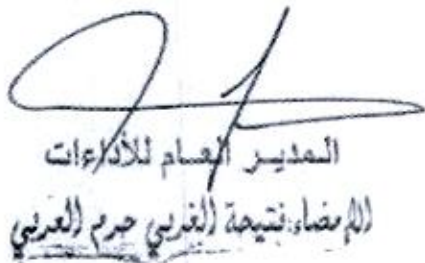 المدير العام للأداءات
الإمضاء: فتيحة الغربي حرم العربي